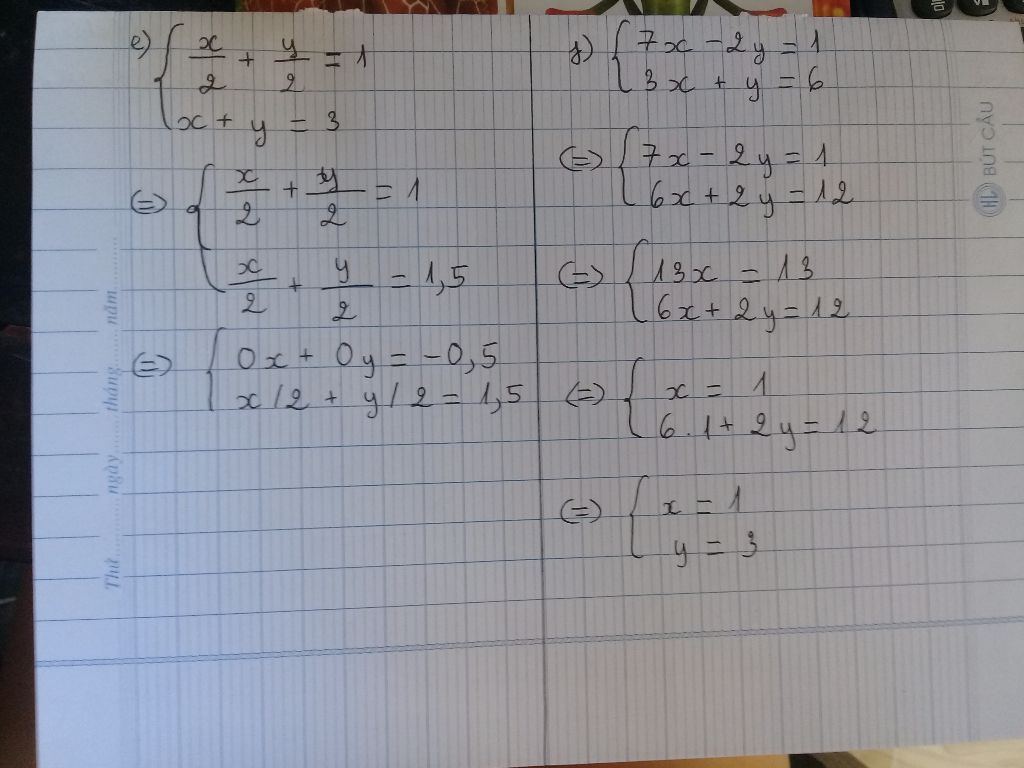 e) { x/2 + y/2 = 1
x + y = 3
(=) { x/2 + y/2 = 1
x/2 + y/2 = 1,5
(=) { 0x + 0y = -0,5
x/2 + y/2 = 1,5
f) { 7x - 2y = 1
3x + y = 6
(=) { 7x - 2y = 1
6x + 2y = 12
(=) { 13x = 13
6x + 2y = 12
(=) { x = 1
6.1 + 2y = 12
(=) { x = 1
y = 3
BÚT CẦU
Thứ........ngày........tháng........năm........